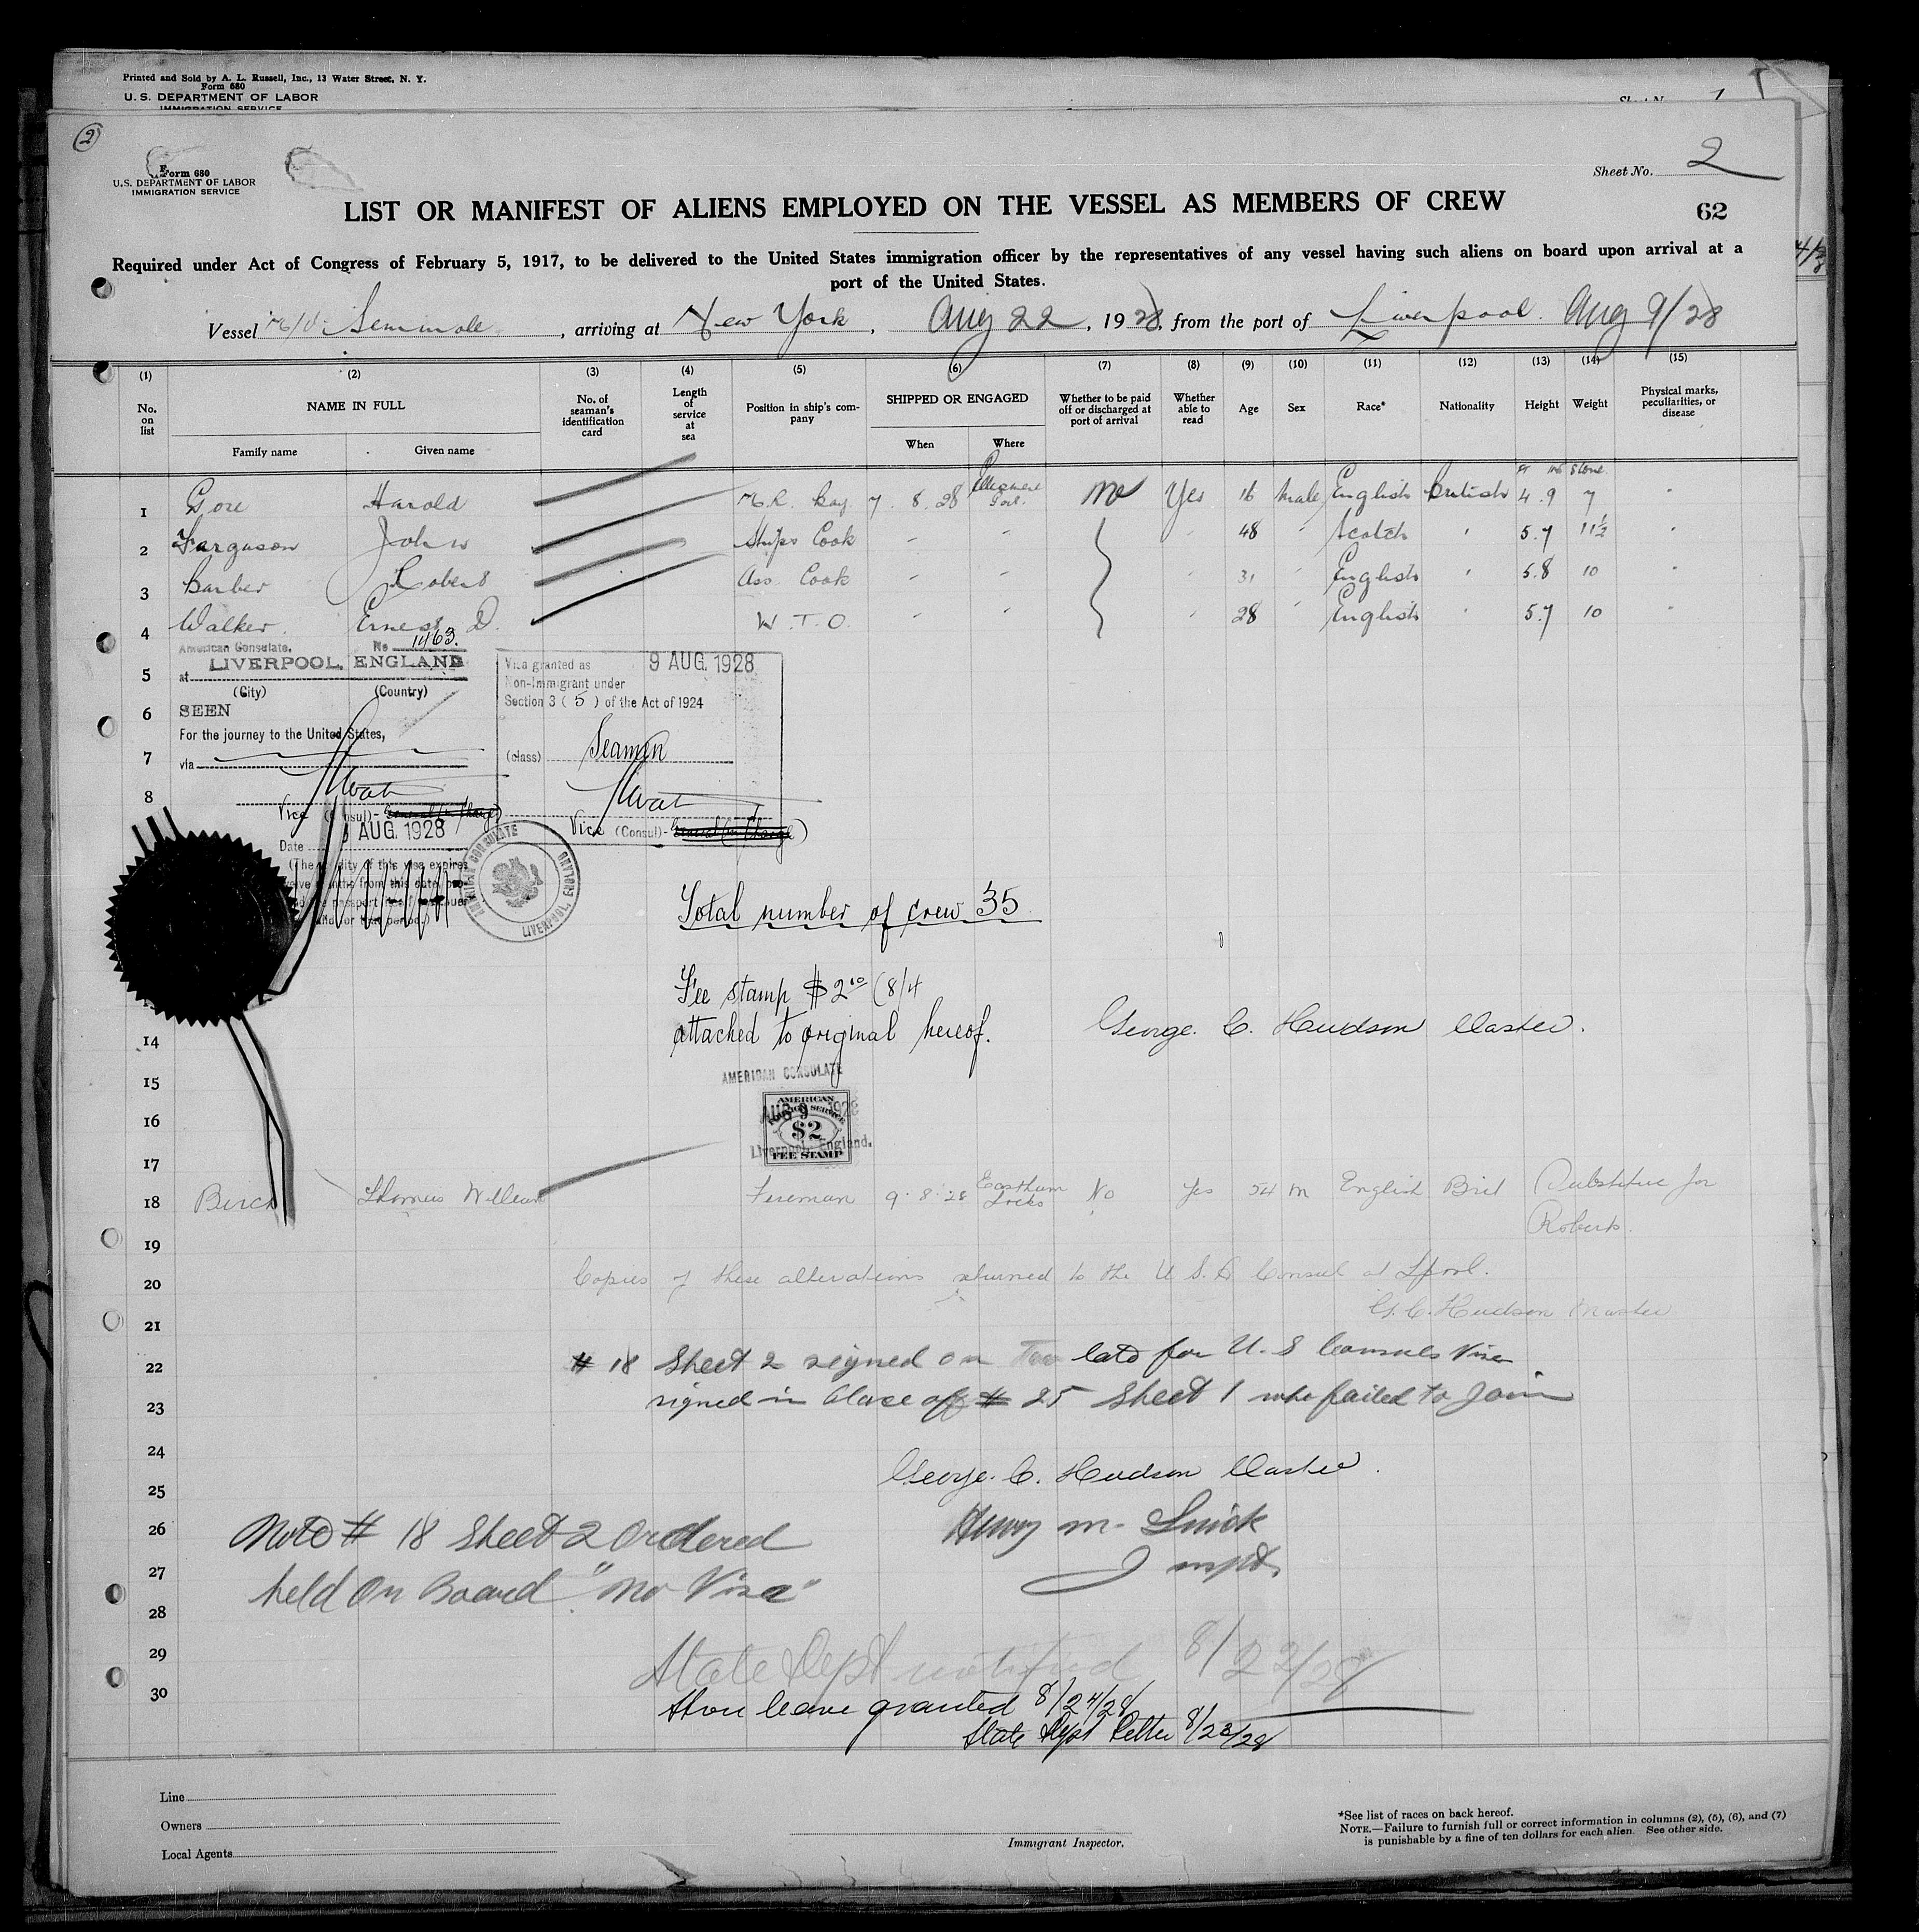 Printed and Sold by A. L. Russell, Inc., 13 Water Street, N. Y.
Form 680
U. S. DEPARTMENT OF LABOR
IMMIGRATION SERVICE
2
Form 680
U.S. DEPARTMENT OF LABOR
IMMIGRATION SERVICE
Sheet No. 2
LIST OR MANIFEST OF ALIENS EMPLOYED ON THE VESSEL AS MEMBERS OF CREW
62
Required under Act of Congress of February 5, 1917, to be delivered to the United States immigration officer by the representatives of any vessel having such aliens on board upon arrival at a
port of the United States.
Vessel M/V Seminole, arriving at New York, Aug 22, 1928, from the port of Liverpool. Aug 9/28
(1) (2) (3) (4) (5) (6) (7) (8) (9) (10) (11) (12) (13) (14) (15)
No. on list
NAME IN FULL
Family name Given name
No. of seaman's identification card
Length of service at sea
Position in ship's company
SHIPPED OR ENGAGED
When Where
Whether to be paid off or discharged at port of arrival
Whether able to read
Age
Sex
Race*
Nationality
Height
Weight
Physical marks, peculiarities, or disease
Ft ins Stone
1 Gore Harold 7. 8. 28 Ellesmere Port. No Yes 16 Male English British 4.9 7 "
2 Ferguson John Ships Cook " " " 48 " Scotch " 5.7 11½ "
3 Barber Robert Ass. Cook " " " 31 " English " 5.8 10 "
4 Walker. Ernest D. W.T.O. " " " 28 " English " 5.7 10 "
American Consulate, No 1463.
5 at LIVERPOOL, ENGLAND
(City) (Country)
6 SEEN
For the journey to the United States,
7 via
8
Vice (Consul)-General (in Charge)
Date 9 AUG. 1928
(The validity of this visa expires
twelve months from this date, pro-
Visa granted as 9 AUG. 1928
Non-Immigrant under
Section 3 (5) of the Act of 1924
(class) Seamen
Vice (Consul)-General (in Charge)
AMERICAN CONSULATE
LIVERPOOL, ENGLAND
Total number of crew 35
Fee stamp $2.00 (8/4
attached to original hereof.
George. C. Hudson Master.
14
AMERICAN CONSULATE
15
AMERICAN
FOREIGN SERVICE
AUG 9 1928
16
$2
Liverpool, England.
FEE STAMP
17
18 Birch Thomas William Fireman 9. 8. 28 Eastham Locks No Yes 54 M English Brit Substitute for
Roberts.
19
20 Copies of these alterations returned to the U S A Consul at Lpool.
G. C. Hudson Master
21
22 # 18 Sheet 2 signed on Too late for U. S Consuls Visa
23 signed in Place of # 25 Sheet 1 who failed to Join
24
George. C. Hudson Master.
25
26 Note # 18 Sheet 2 Ordered
Henry M.
27 held On Board "No Visa"
Inspt.
28
29 State Dept notified 8/22/28
30 Shore leave granted 8/24/28
State Dept Letter 8/23/28
Line
Owners
Local Agents
Immigrant Inspector.
*See list of races on back hereof.
NOTE.—Failure to furnish full or correct information in columns (2), (5), (6), and (7)
is punishable by a fine of ten dollars for each alien. See other side.